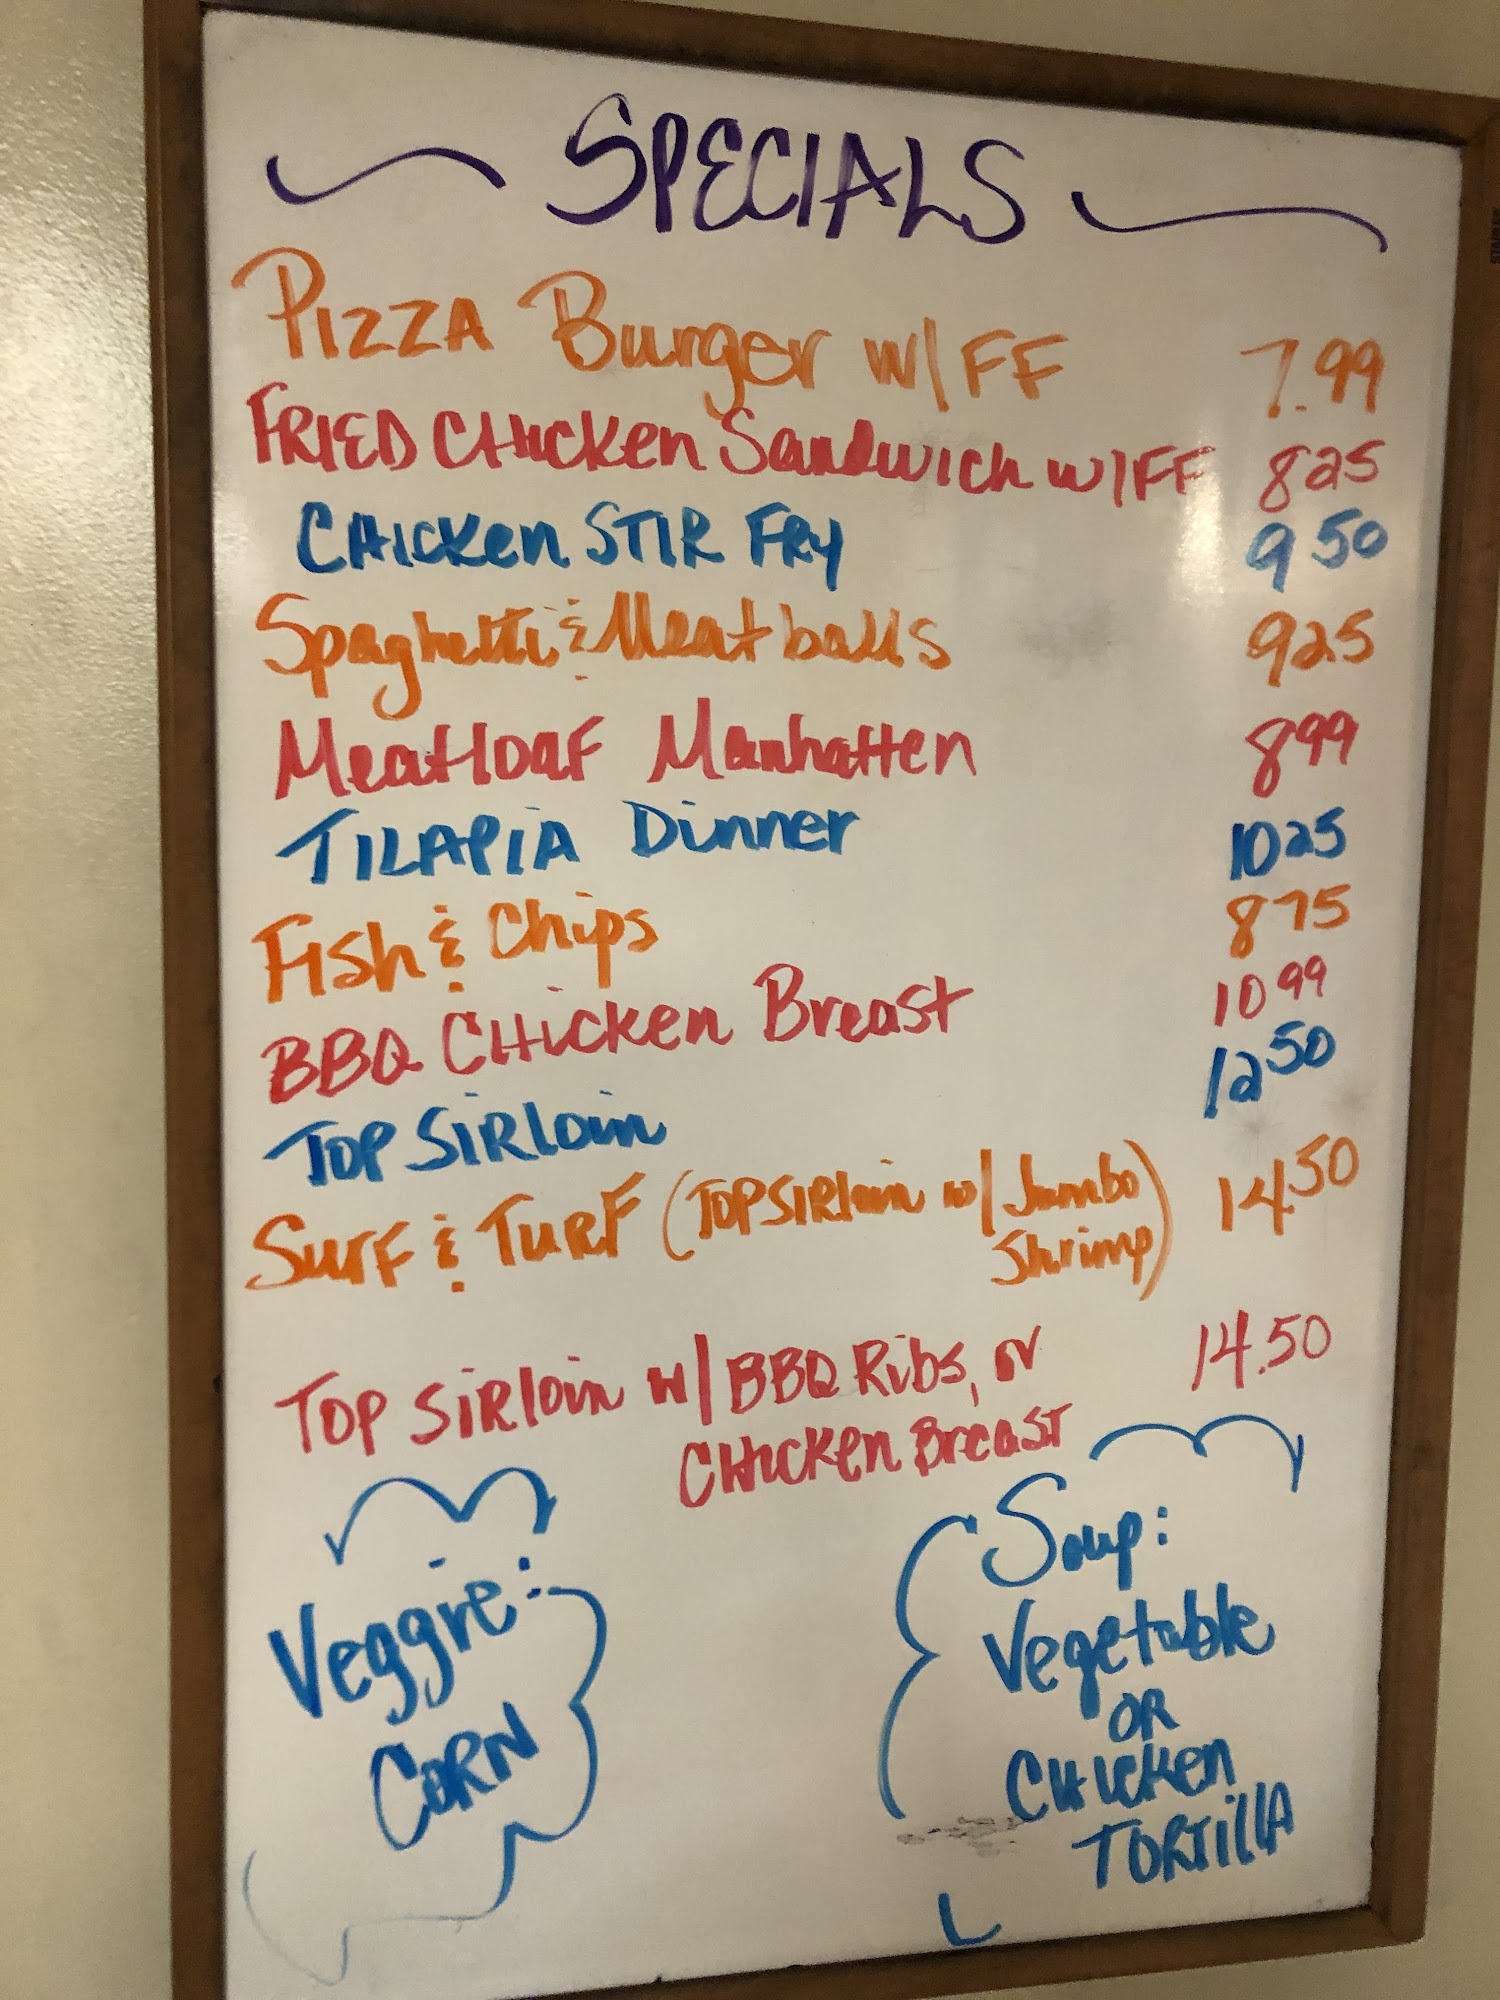 SPECIALS
PIZZA Burger w/FF 7.99
FRIED CHICKEN Sandwich w/FF 825
CHICKEN STIR FRY 950
Spaghetti & Meatballs 925
Meatloaf Manhatten 899
TILAPIA Dinner 1025
Fish & Chips 875
BBQ CHICKEN Breast 1099
TOP SIRloin 1250
SURF & TURF (TOP SIRloin w/ Jumbo 14.50
Shrimp)
TOP SIRloin w/ BBQ Ribs, or 14.50
CHICKEN Breast
Veggie:
CORN
Soup:
Vegetable
OR
CHICKEN
TORTillA